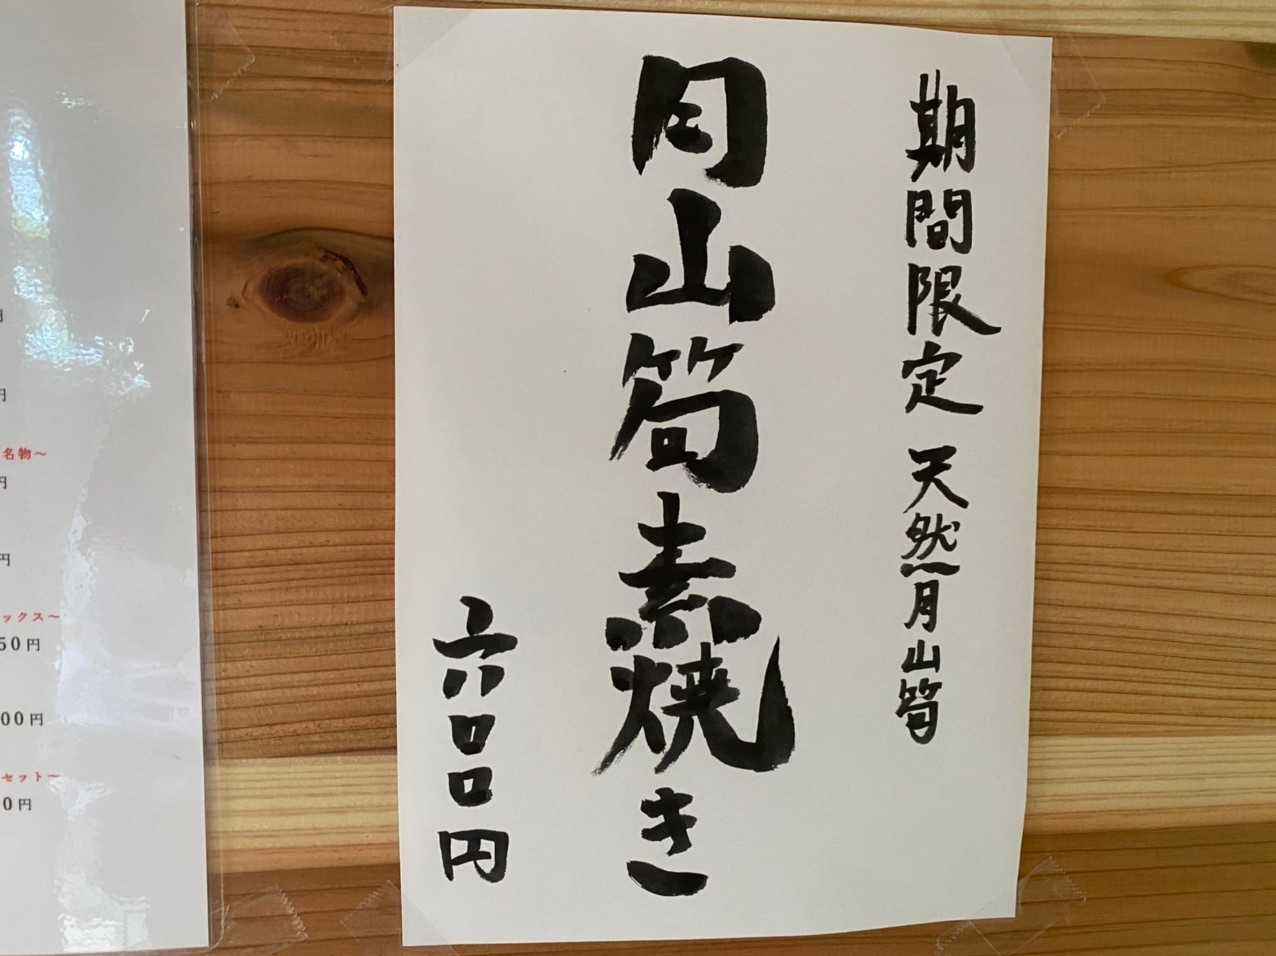 期間限定 天然月山筍
月山筍素焼き
六〇〇円
円
円
名物～
円
円
ックス～
50円
00円
セット～
0円